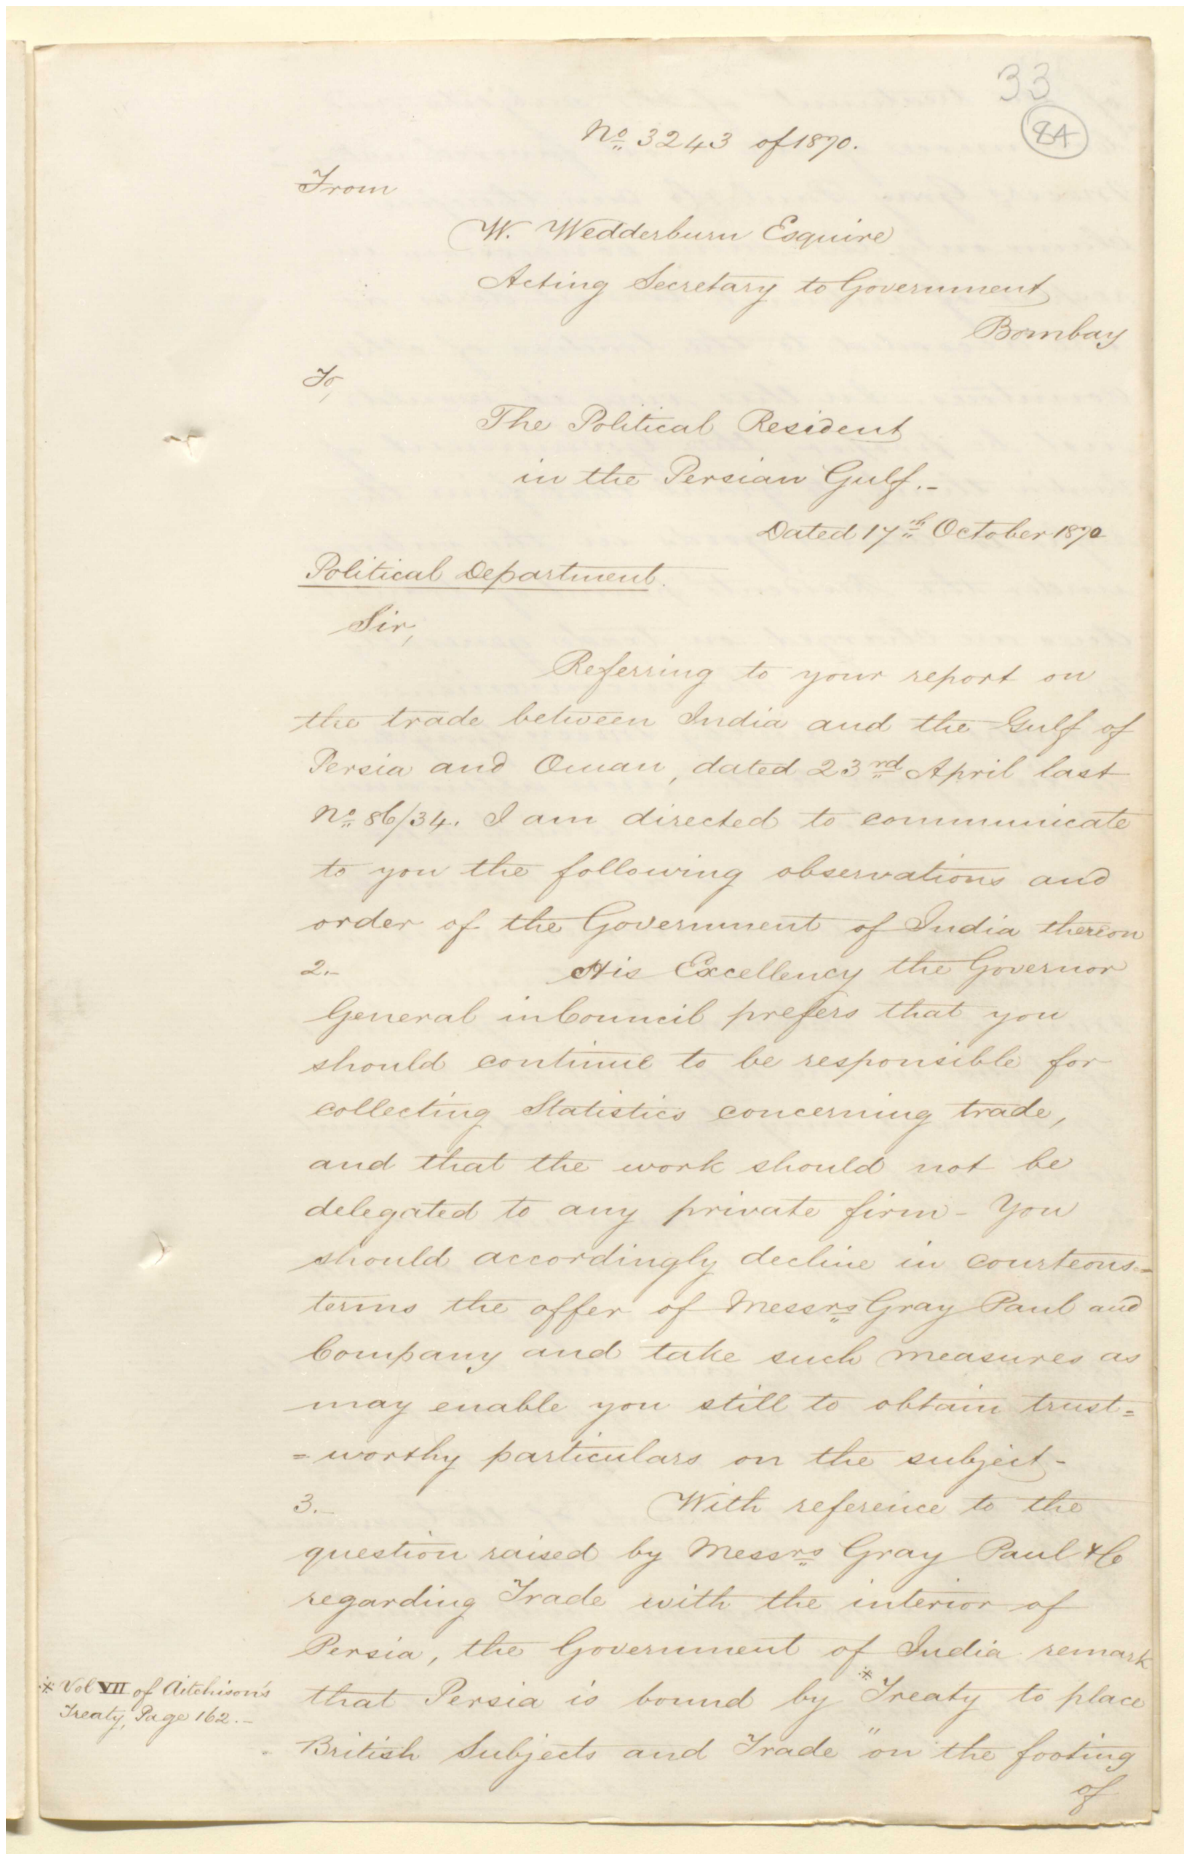 33
84
No 3243 of 1870.
From
W. Wedderburn Esquire
Acting Secretary to Government
Bombay
To,
The Political Resident
in the Persian Gulf.-
Dated 17th October 1870
Political Department.
Sir,
Referring to your report on
the trade between India and the Gulf of
Persia and Oman, dated 23rd April last
No 86/34. I am directed to communicate
to you the following observations and
order of the Government of India thereon
2.- His Excellency the Governor
General in Council prefers that you
should continue to be responsible for
collecting Statistics concerning trade,
and that the work should not be
delegated to any private firm - You
should accordingly decline in courteous-
terms the offer of Messrs Gray Paul and
Company and take such measures as
may enable you still to obtain trust=
=worthy particulars on the subject -
3.- With reference to the
question raised by Messrs Gray Paul & Co
regarding Trade with the interior of
Persia, the Government of India remark
* Vol VII of Aitchison's
Treaty, Page 162.-
that Persia is bound by *Treaty to place
British Subjects and Trade "on the footing
of